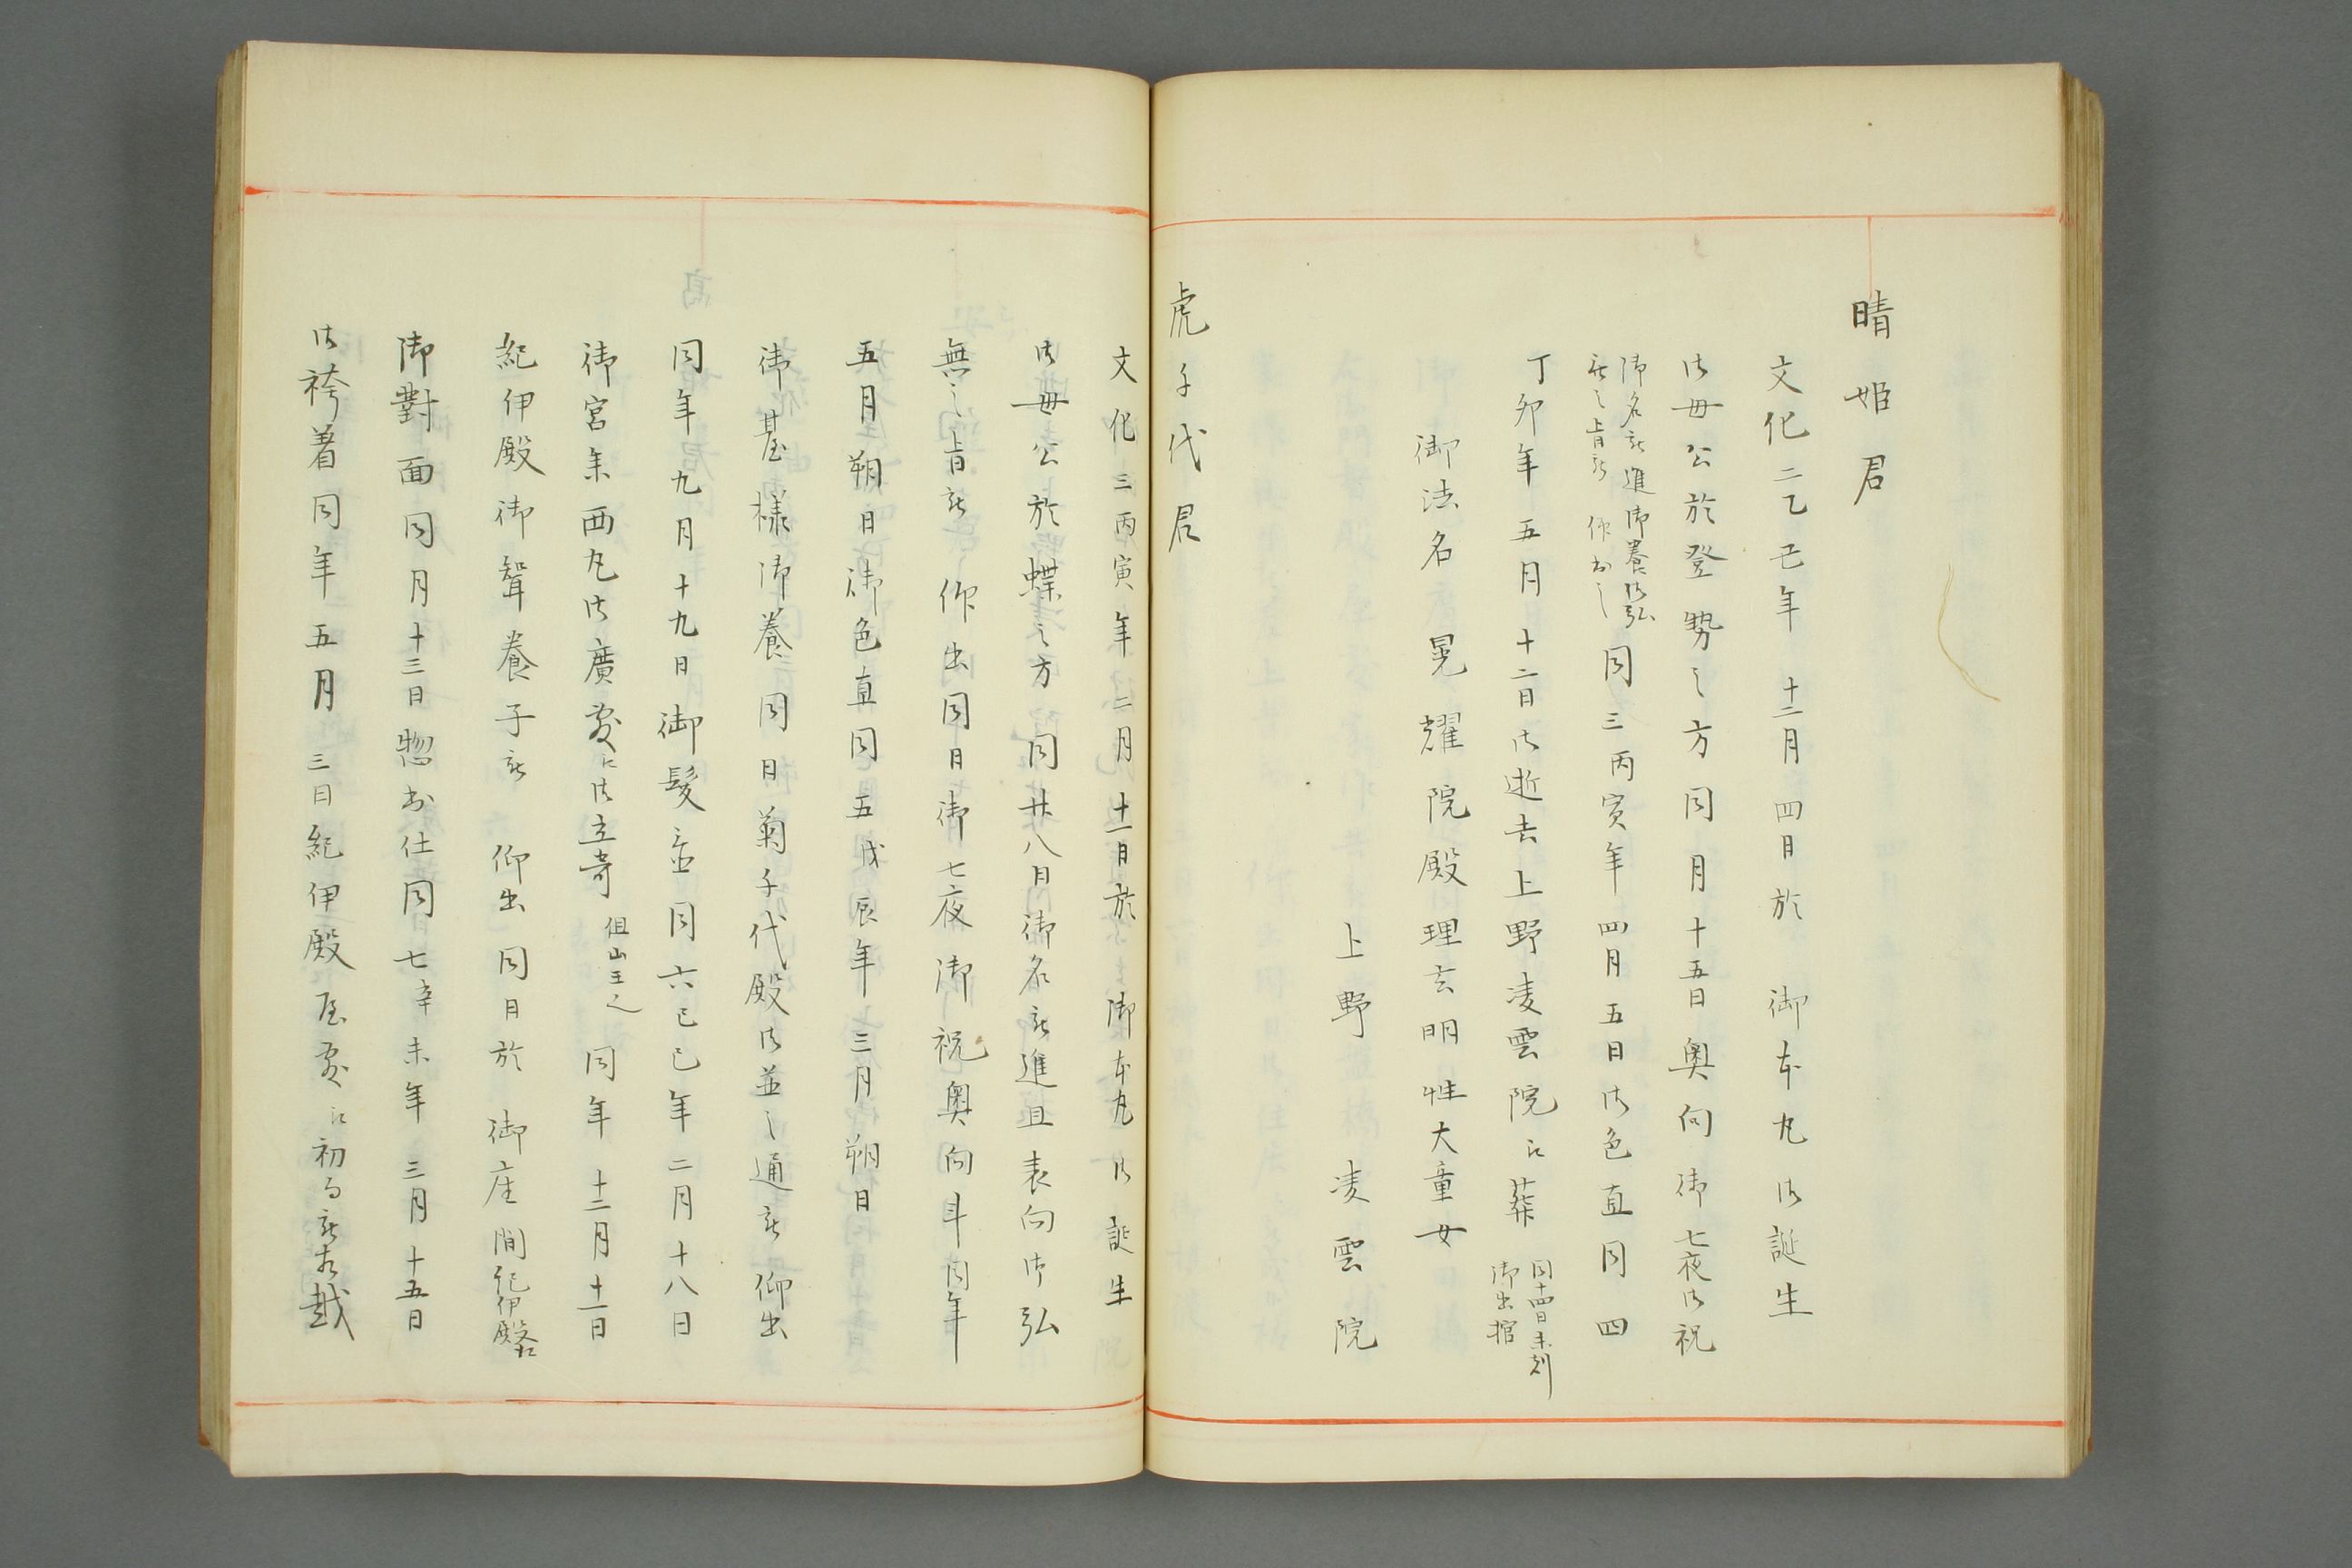 晴姫君
文化二乙巳年十二月四日於　御本丸御誕生
御母公於登勢之方同月十五日奥向御七夜御祝
御名被進御養御弘
無之旨被　仰出之
同三丙寅年四月五日御色直同四
丁卯年五月十二日御逝去上野凌雲院江葬
同十四日未刻
御出棺
御法名晃耀院殿理玄明性大童女
上野　凌雲院
虎千代君
文化三丙寅年二月十一日於　御本丸御誕生
御母公於蝶之方同廿八日御名被進且表向御弘
無之旨被　仰出同日御七夜御祝奥向斗同年
五月朔日御色直同五戊辰年三月朔日
御臺様御養同日菊千代殿御並之通被　仰出
同年九月十九日御髪置同六己巳年二月十八日
御宮参西丸御廣敷江御立寄
但山王之
同年十二月十一日
紀伊殿御聟養子被　仰出同日於　御座間紀伊殿江
御對面同月十三日惣出仕同七辛未年三月十五日
御袴着同年五月三日紀伊殿屋敷江初而被為越